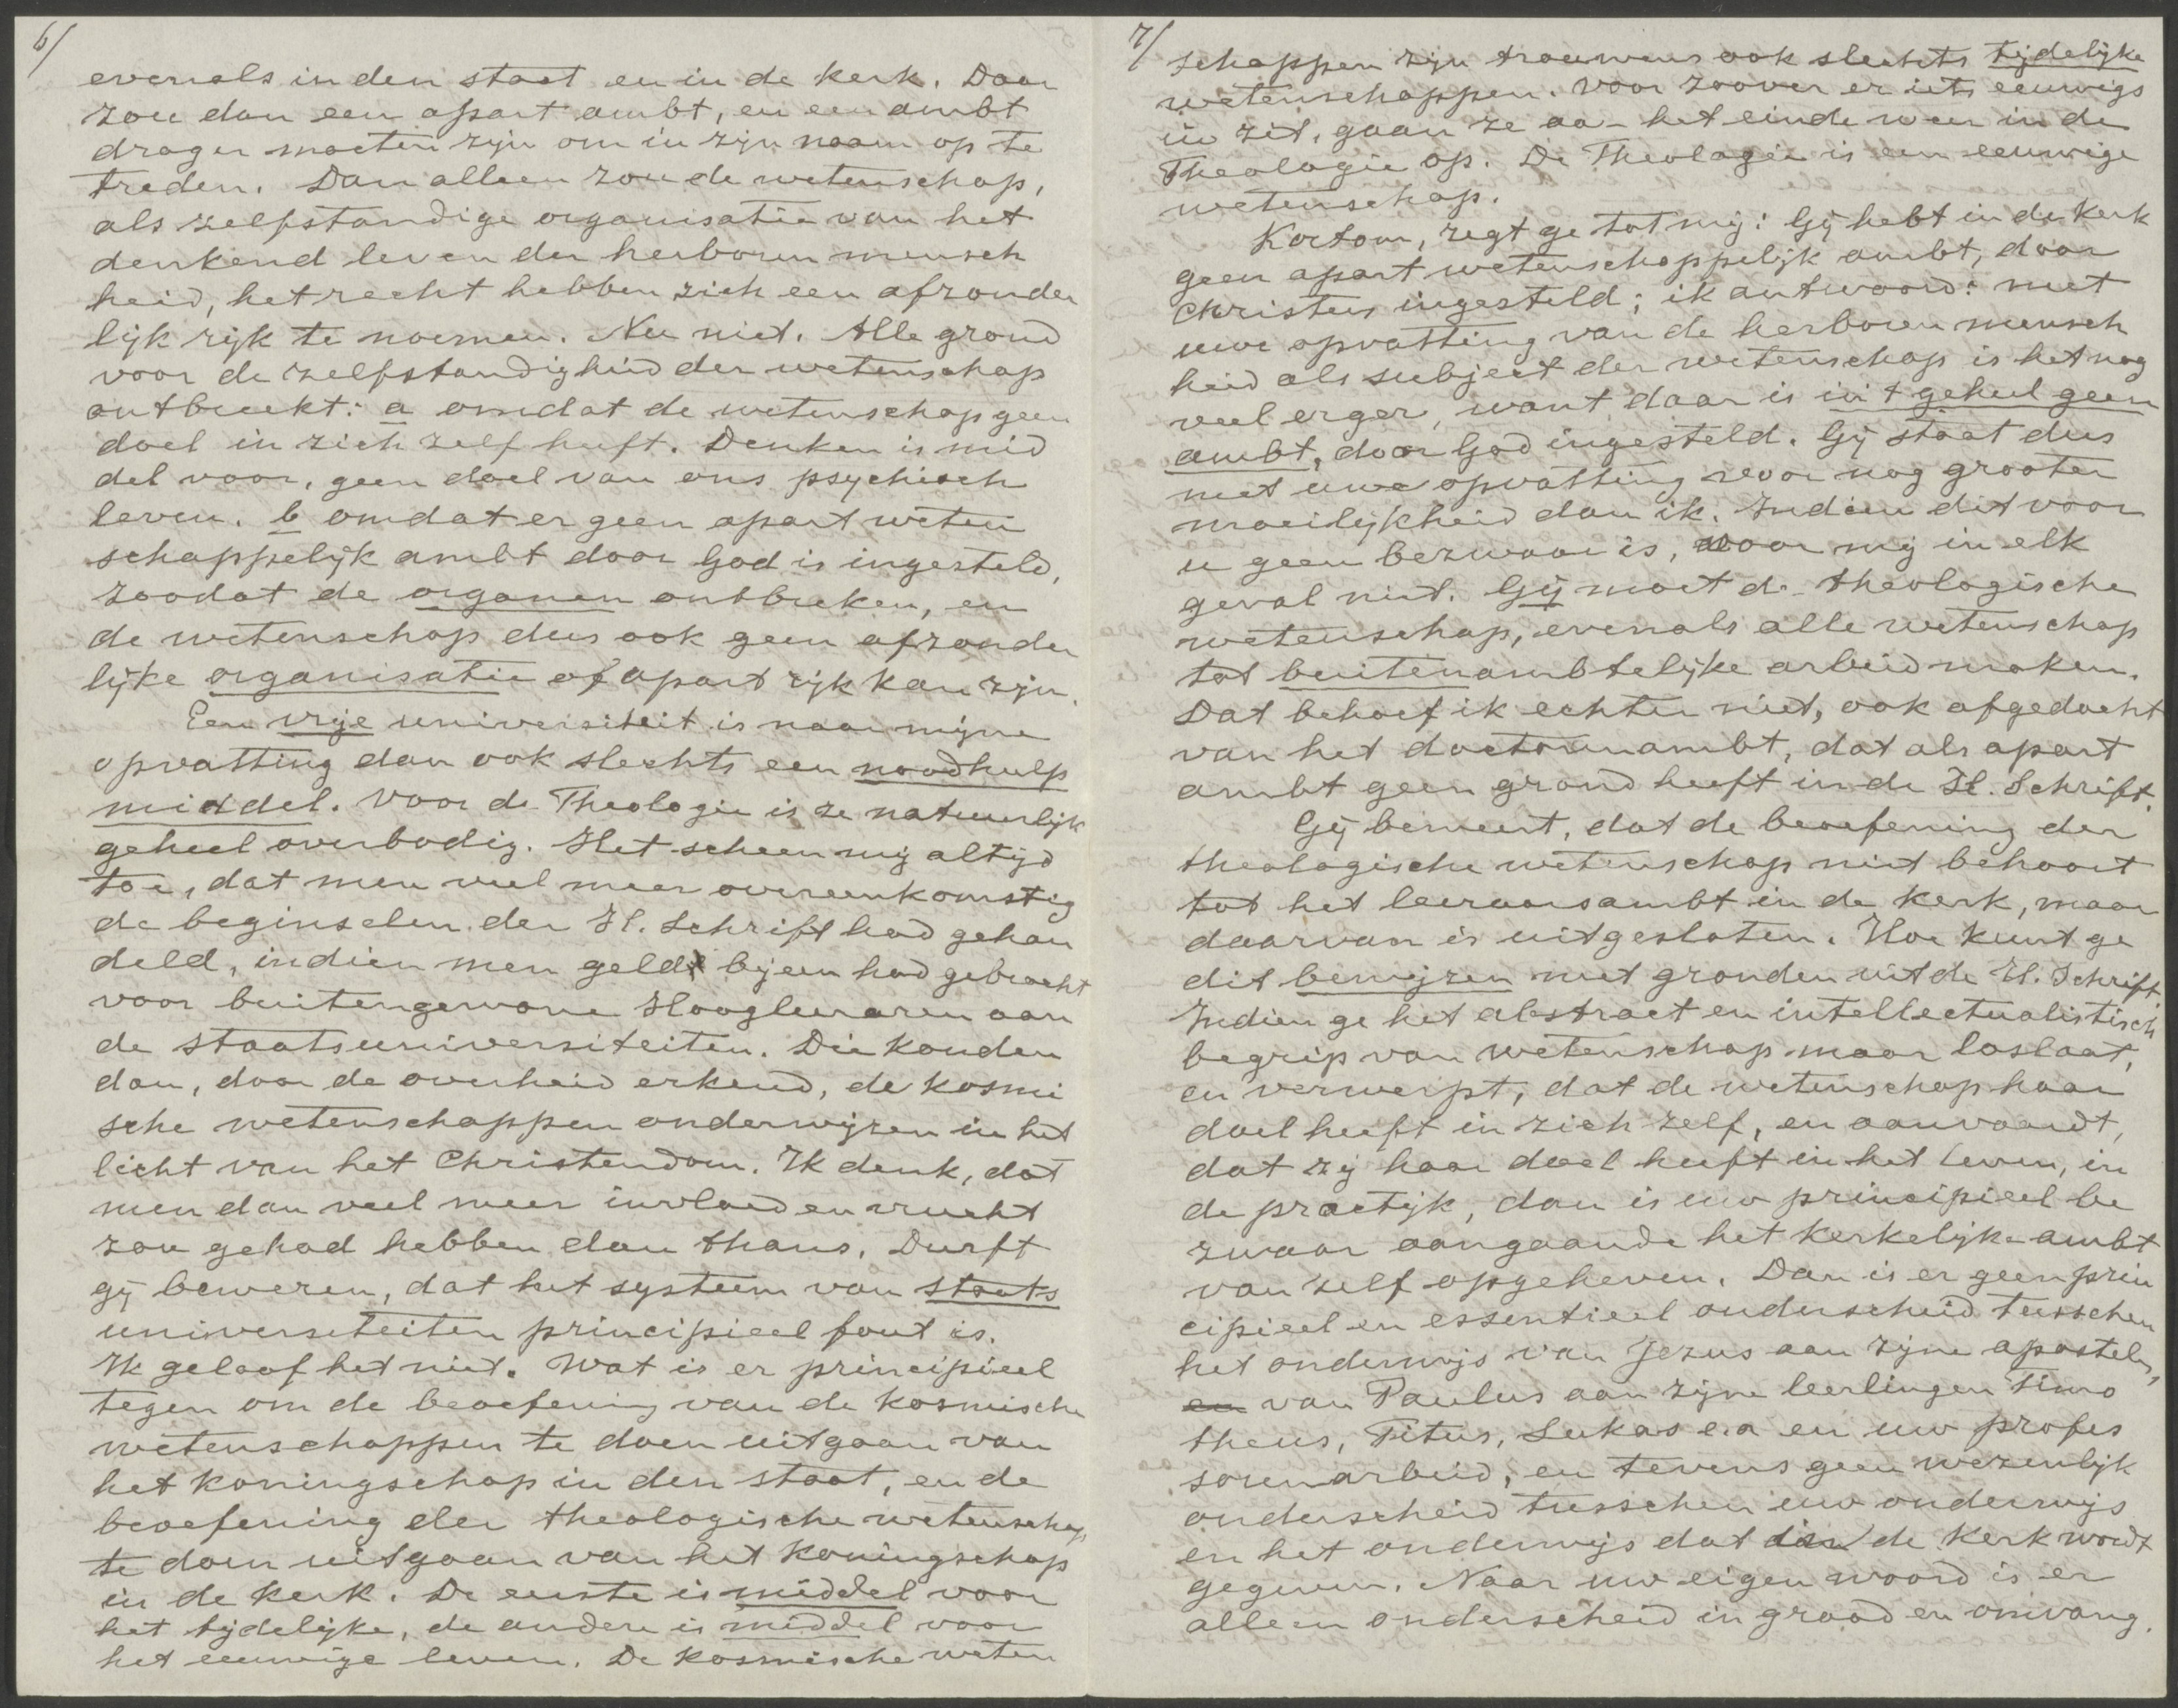 6/
evenals in den staat en in de kerk. Daar
zou dan een apart ambt, en een ambt
drager moeten zijn om in zijn naam op te
treden. Dan alleen zou de wetenschap,
als zelfstandige organisatie van het
denkend leven der herboren mensch
heid, het recht hebben zich een afzonder
lijk rijk te noemen. Nu niet. Alle grond
voor de zelfstandigheid der wetenschap
ontbreekt: a omdat de wetenschap geen
doel in zich zelf heeft. Denken is mid
del voor, geen doel van ons psychisch
leven. b omdat er geen apart weten
schappelijk ambt door God is ingesteld,
zoodat de organen ontbreken, en
de wetenschap dus ook geen afzonder
lijke organisatie of apart rijk kan zijn.
Een vrije universiteit is naar mijne
opvatting dan ook slechts een noodhulp
middel. Voor de Theologie is ze natuurlijk
geheel overbodig. Het scheen mij altijd
toe, dat men veel meer overeenkomstig
de beginselen der H. Schrift had gehan
deld, indien men geld bijeen had gebracht
voor buitengewone Hoogleeraren aan
de staatsuniversiteiten. Die konden
dan, door de overheid erkend, de kosmi
sche wetenschappen onderwijzen in het
licht van het Christendom. Ik denk, dat
men dan veel meer invloed en vrucht
zou gehad hebben dan thans. Durft
gij beweren, dat het systeem van staats
universiteiten principieel fout is.
Ik geloof het niet. Wat is er principieel
tegen om de beoefening van de kosmische
wetenschappen te doen uitgaan van
het koningschap in den staat, en de
beoefening der theologische wetenschap
te doen uitgaan van het koningschap
in de kerk. De eerste is middel voor
het tijdelijke, de andere is middel voor
het eeuwige leven. De kosmische weten
7/
schappen zijn trouwens ook slechts tijdelijke
wetenschappen. Voor zoover er iets eeuwigs
in zit, gaan ze aa- het einde weer in de
Theologie op. De Theologie is een eeuwige
wetenschap.
Kortom, zegt ge tot mij: Gij hebt in de kerk
geen apart wetenschappelijk ambt, door
Christus ingesteld; ik antwoord: met
uwe opvatting van de herboren mensch
heid als subject der wetenschap is het nog
veel erger, want daar is in 't geheel geen
ambt, door God ingesteld. Gij staat dus
met uwe opvatting voor nog grooter
moeilijkheid dan ik. Indien dit voor
u geen bezwaar is, voor mij in elk
geval niet. Gij moet de theologische
wetenschap, evenals alle wetenschap
tot buitenambtelijke arbeid maken.
Dat behoef ik echter niet, ook afgedacht
van het doctorenambt, dat als apart
ambt geen grond heeft in de H. Schrift.
Gij beweert, dat de beoefening der
theologische wetenschap niet behoort
tot het leeraarsambt in de kerk, maar
daarvan is uitgesloten. Hoe kunt ge
dit bewijzen met gronden uit de H. Schrift.
Indien ge het abstract en intellectualistisch
begrip van wetenschap maar loslaat,
en verwerpt, dat de wetenschap haar
doel heeft in zich zelf, en aanvaardt,
dat zij haar doel heeft in het leven, in
de practijk, dan is uw principieel be
zwaar aangaande het kerkelijke ambt
van zelf opgeheven. Dan is er geen prin
cipieel en essentieel onderscheid tusschen
het onderwijs van Jezus aan zijne apostelen,
en van Paulus aan zijne leerlingen Timo
theus, Titus, Lukas e.a en uw profes
sorenarbeid, en tevens geen wezenlijk
onderscheid tusschen uw onderwijs
en het onderwijs dat in de kerk wordt
gegeven. Naar uw eigen woord is er
alleen onderscheid in graad en omvang.